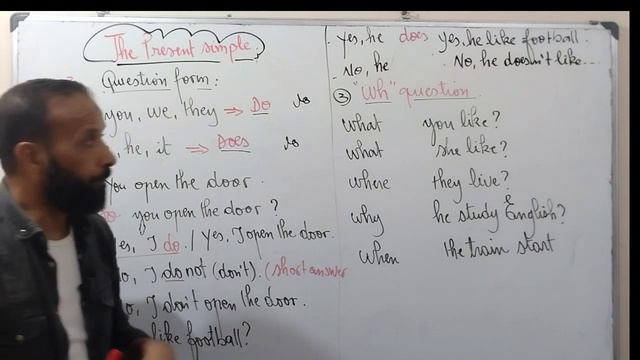 The Present simple.
Question form:
you, we, they ⇒ Do
he, it ⇒ Does
you open the door.
you open the door?
yes, I do. / Yes, I open the door.
I do not (don't). (short answer
I don't open the door.
like football?
Yes, he does Yes, he like football.
No, he No, he doesn't like...
③ "Wh" question
what you like?
what she like?
where they live?
why he study English?
when the train start